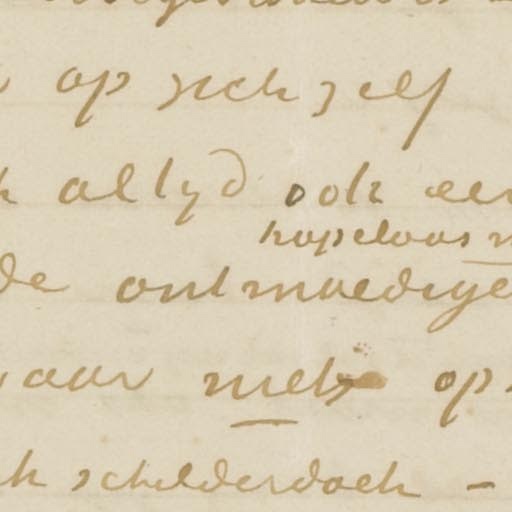 op zich zelf
altyd ook een
hopeloos
de ontmoedigen
waar niets op
schilderdoek -